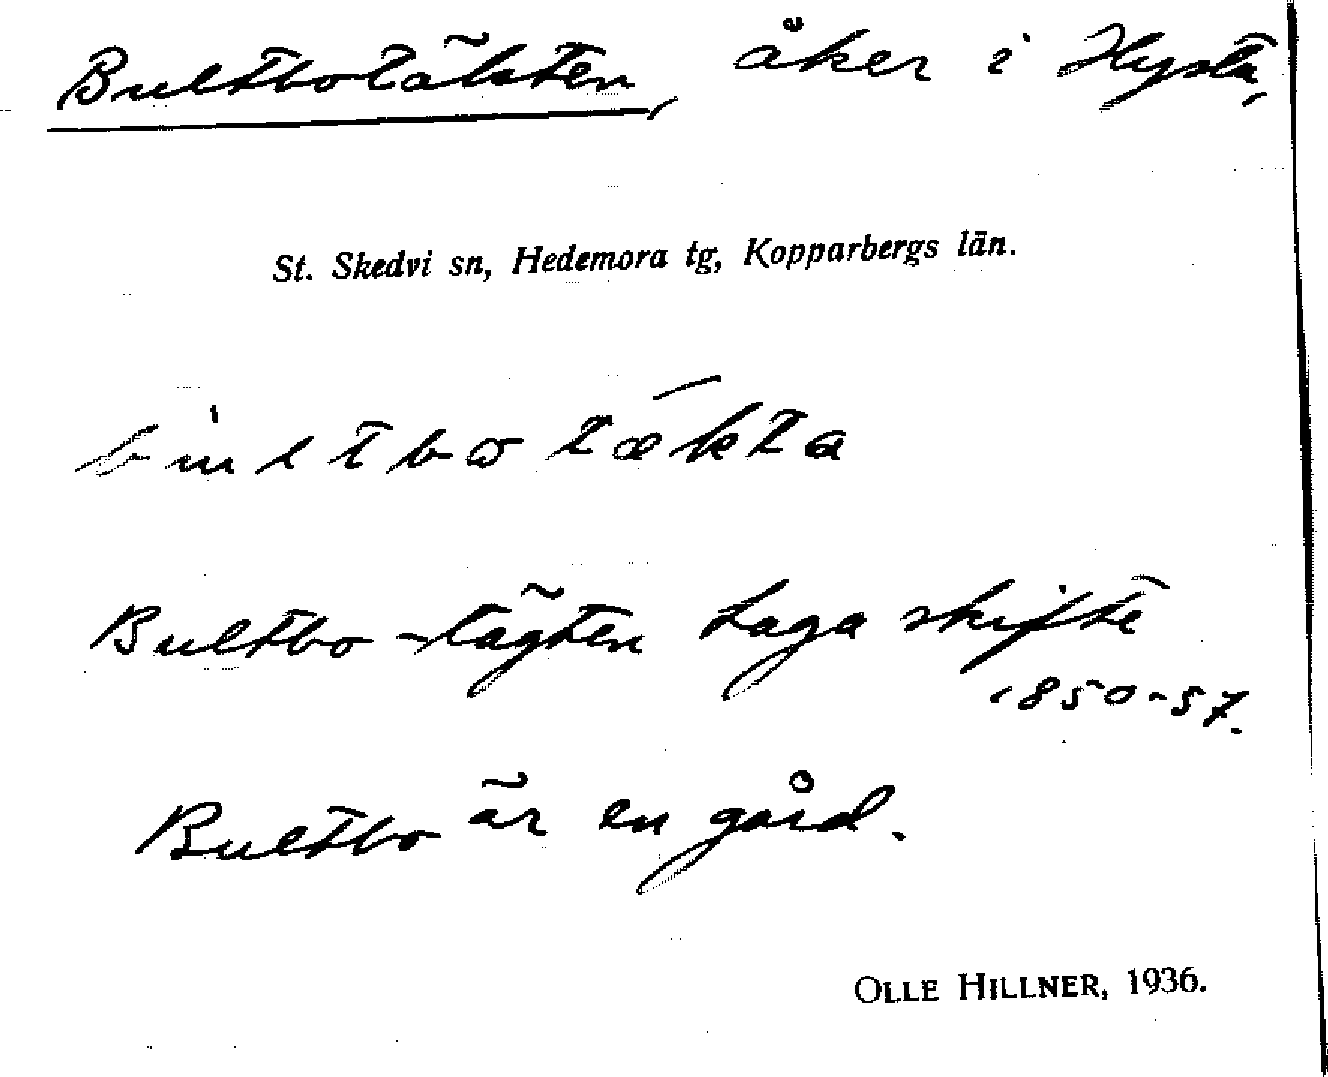 Bultbotäkten, åker i Hysta,
St. Skedvi sn, Hedemora tg, Kopparbergs län.
Bultbo-tägten Laga skifte
1850-57.
Bultbo är en gård.
OLLE HILLNER, 1936.